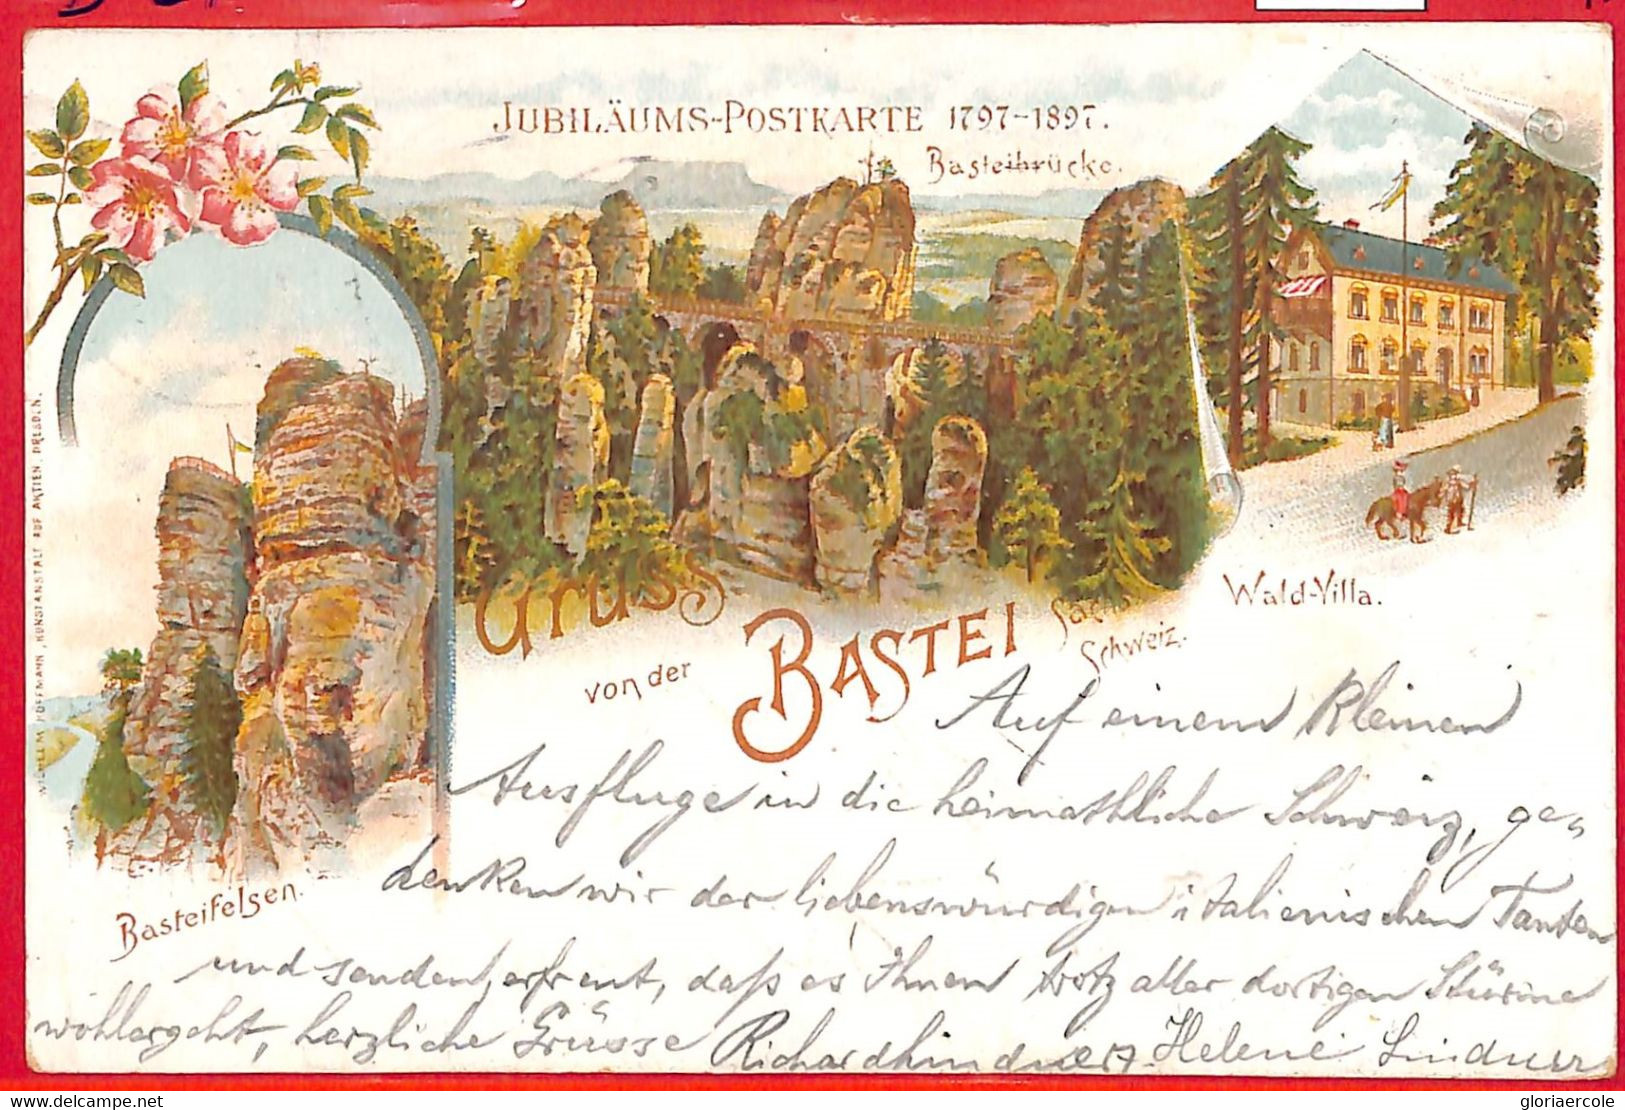 JUBILÄUMS-POSTKARTE 1797-1897.
Basteibrücke.
Wald-Villa.
Gruss
von der
BASTEI
Sächs.
Schweiz.
Basteifelsen.
WILHELM HOFFMANN, KUNSTANSTALT AUF AKTIEN, DRESDEN.
Auf einem kleinen
Ausfluge in die heimathliche Schweiz, ge-
denken wir der liebenswürdigen italienischen Tanten
und senden, erfreut, daß es Ihnen trotz aller dortigen Stürme
wohlergeht, herzliche Grüsse Richard Lindner. Helene Lindner
delcampe.net
gloriaercole